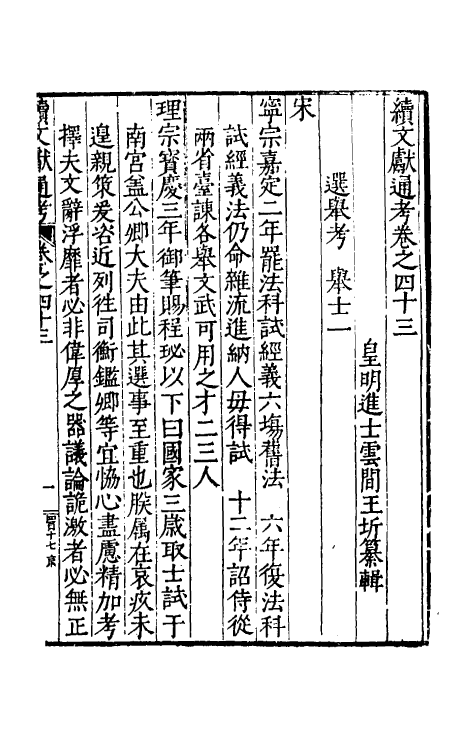 續文獻通考卷之四十三
皇明進士雲間王圻纂輯
選舉考 舉士一
宋
寧宗嘉定二年罷法科試經義六塲舊法 六年復法科
試經義法仍命雜流進納人毋得試 十二年詔侍從
兩省臺諫各舉文武可用之才二三人
理宗寳慶三年御筆賜程珌以下曰國家三歲取士試于
南宮盖公卿大夫由此其選事至重也朕属在哀疚未
遑親策爰咨近列徃司衡鑑卿等宜恊心盡慮精加考
擇夫文辭浮靡者必非偉厚之器議論詭激者必無正
續文獻通考 卷之四十三 一